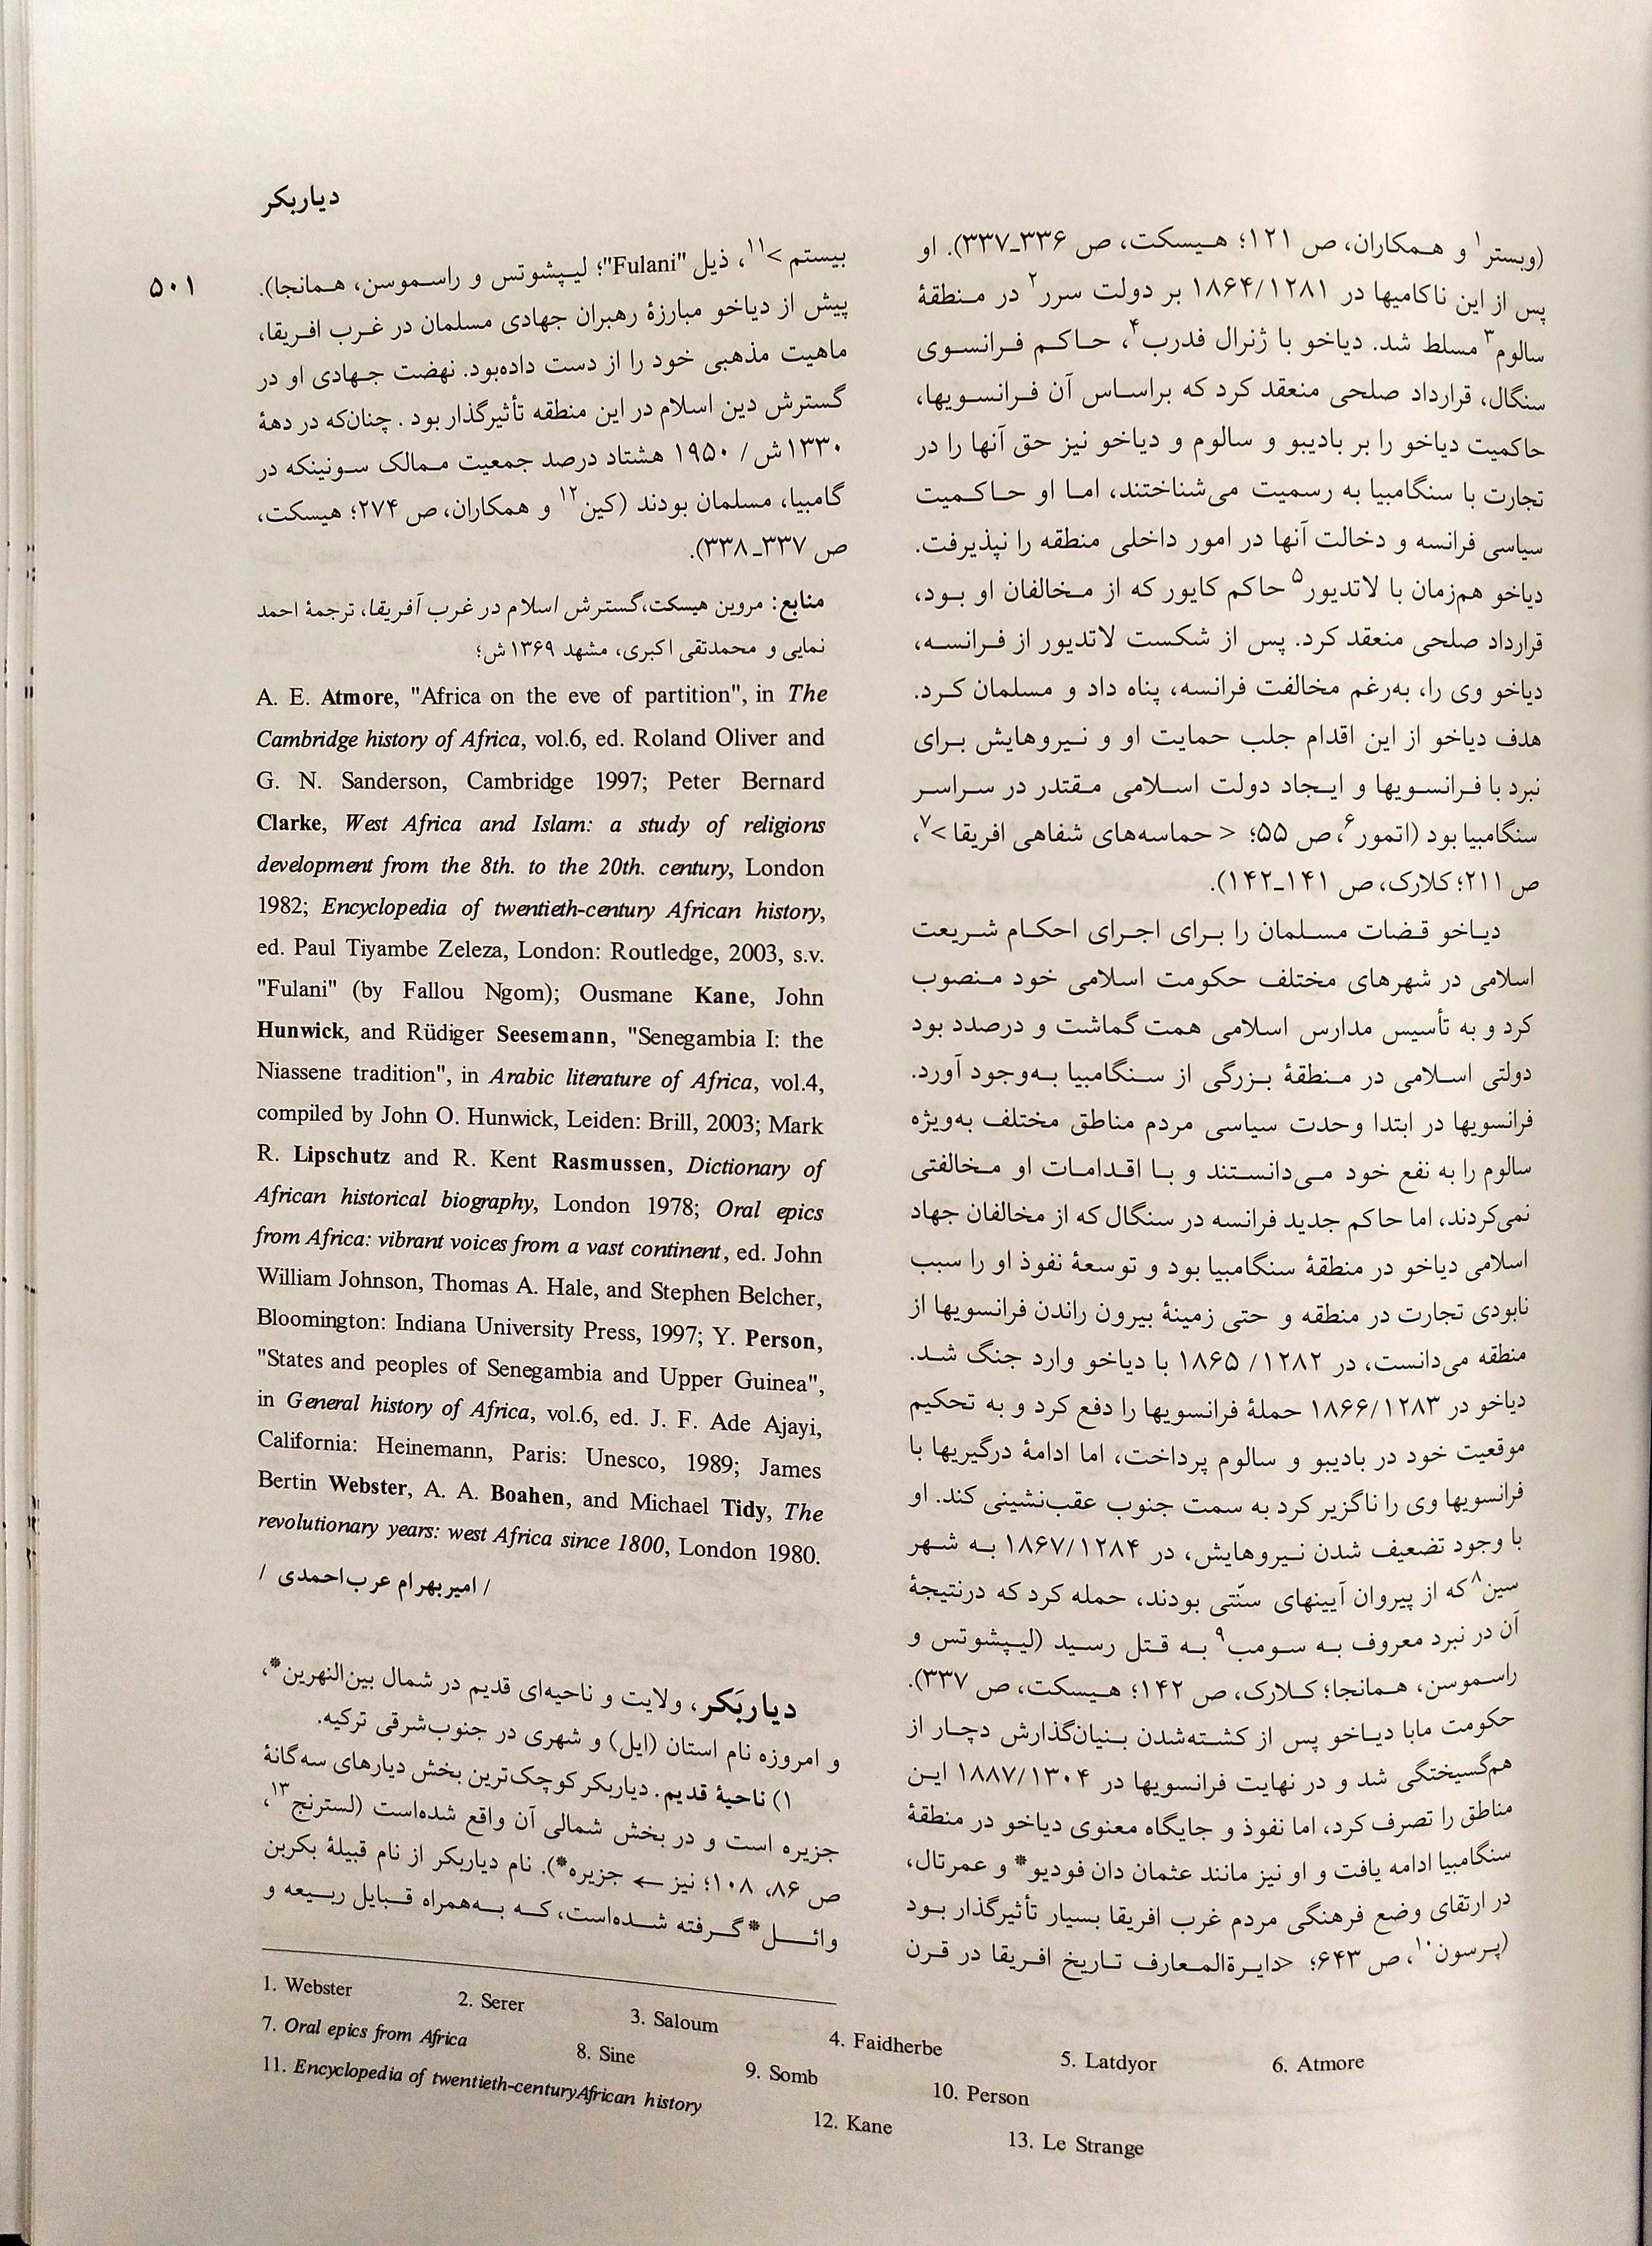 دیاربکر
۵۰۱
(وبستر۱ و همکاران، ص ۱۲۱؛ هیسکت، ص ۳۳۶ـ۳۳۷). او
پس از این ناکامیها در ۱۸۶۴/۱۲۸۱ بر دولت سرر۲ در منطقهٔ
سالوم۳ مسلط شد. دیاخو با ژنرال فدرب۴، حاکم فرانسوی
سنگال، قرارداد صلحی منعقد کرد که براساس آن فرانسویها،
حاکمیت دیاخو را بر بادیبو و سالوم و دیاخو نیز حق آنها را در
تجارت با سنگامبیا به رسمیت می‌شناختند، اما او حاکمیت
سیاسی فرانسه و دخالت آنها در امور داخلی منطقه را نپذیرفت.
دیاخو هم‌زمان با لاتدیور۵ حاکم کایور که از مخالفان او بود،
قرارداد صلحی منعقد کرد. پس از شکست لاتدیور از فرانسه،
دیاخو وی را، به‌رغم مخالفت فرانسه، پناه داد و مسلمان کرد.
هدف دیاخو از این اقدام جلب حمایت او و نیروهایش برای
نبرد با فرانسویها و ایجاد دولت اسلامی مقتدر در سراسر
سنگامبیا بود (اتمور۶، ص ۵۵؛ < حماسه‌های شفاهی افریقا >۷،
ص ۲۱۱؛ کلارک، ص ۱۴۱ـ۱۴۲).
دیاخو قضات مسلمان را برای اجرای احکام شریعت
اسلامی در شهرهای مختلف حکومت اسلامی خود منصوب
کرد و به تأسیس مدارس اسلامی همت گماشت و درصدد بود
دولتی اسلامی در منطقهٔ بزرگی از سنگامبیا به‌وجود آورد.
فرانسویها در ابتدا وحدت سیاسی مردم مناطق مختلف به‌ویژه
سالوم را به نفع خود می‌دانستند و با اقدامات او مخالفتی
نمی‌کردند، اما حاکم جدید فرانسه در سنگال که از مخالفان جهاد
اسلامی دیاخو در منطقهٔ سنگامبیا بود و توسعهٔ نفوذ او را سبب
نابودی تجارت در منطقه و حتی زمینهٔ بیرون راندن فرانسویها از
منطقه می‌دانست، در ۱۲۸۲/ ۱۸۶۵ با دیاخو وارد جنگ شد.
دیاخو در ۱۸۶۶/۱۲۸۳ حملهٔ فرانسویها را دفع کرد و به تحکیم
موقعیت خود در بادیبو و سالوم پرداخت، اما ادامهٔ درگیریها با
فرانسویها وی را ناگزیر کرد به سمت جنوب عقب‌نشینی کند. او
با وجود تضعیف شدن نیروهایش، در ۱۸۶۷/۱۲۸۴ به شهر
سین۸ که از پیروان آیینهای سنّتی بودند، حمله کرد که درنتیجهٔ
آن در نبرد معروف به سومب۹ به قتل رسید (لیپشوتس و
راسموسن، همانجا؛ کلارک، ص ۱۴۲؛ هیسکت، ص ۳۳۷).
حکومت مابا دیاخو پس از کشته‌شدن بنیان‌گذارش دچار از
هم‌گسیختگی شد و در نهایت فرانسویها در ۱۸۸۷/۱۳۰۴ این
مناطق را تصرف کرد، اما نفوذ و جایگاه معنوی دیاخو در منطقهٔ
سنگامبیا ادامه یافت و او نیز مانند عثمان دان فودیو* و عمرتال،
در ارتقای وضع فرهنگی مردم غرب افریقا بسیار تأثیرگذار بود
(پرسون۱۰، ص ۶۴۳؛ <دایرةالمعارف تاریخ افریقا در قرن
بیستم >۱۱، ذیل "Fulani"؛ لیپشوتس و راسموسن، همانجا).
پیش از دیاخو مبارزهٔ رهبران جهادی مسلمان در غرب افریقا،
ماهیت مذهبی خود را از دست داده‌بود. نهضت جهادی او در
گسترش دین اسلام در این منطقه تأثیرگذار بود . چنان‌که در دههٔ
۱۳۳۰ش/ ۱۹۵۰ هشتاد درصد جمعیت ممالک سونینکه در
گامبیا، مسلمان بودند (کین۱۲ و همکاران، ص ۲۷۴؛ هیسکت،
ص ۳۳۷ـ۳۳۸).
منابع: مروین هیسکت، گسترش اسلام در غرب آفریقا، ترجمهٔ احمد
نمایی و محمدتقی اکبری، مشهد ۱۳۶۹ ش؛
A. E. Atmore, "Africa on the eve of partition", in The
Cambridge history of Africa, vol.6, ed. Roland Oliver and
G. N. Sanderson, Cambridge 1997; Peter Bernard
Clarke, West Africa and Islam: a study of religions
development from the 8th. to the 20th. century, London
1982; Encyclopedia of twentieth-century African history,
ed. Paul Tiyambe Zeleza, London: Routledge, 2003, s.v.
"Fulani" (by Fallou Ngom); Ousmane Kane, John
Hunwick, and Rüdiger Seesemann, "Senegambia I: the
Niassene tradition", in Arabic literature of Africa, vol.4,
compiled by John O. Hunwick, Leiden: Brill, 2003; Mark
R. Lipschutz and R. Kent Rasmussen, Dictionary of
African historical biography, London 1978; Oral epics
from Africa: vibrant voices from a vast continent, ed. John
William Johnson, Thomas A. Hale, and Stephen Belcher,
Bloomington: Indiana University Press, 1997; Y. Person,
"States and peoples of Senegambia and Upper Guinea",
in General history of Africa, vol.6, ed. J. F. Ade Ajayi,
California: Heinemann, Paris: Unesco, 1989; James
Bertin Webster, A. A. Boahen, and Michael Tidy, The
revolutionary years: west Africa since 1800, London 1980.
/ امیربهرام عرب‌احمدی /
دیاربَکر، ولایت و ناحیه‌ای قدیم در شمال بین‌النهرین*،
و امروزه نام استان (ایل) و شهری در جنوب‌شرقی ترکیه.
۱) ناحیهٔ قدیم. دیاربکر کوچک‌ترین بخش دیارهای سه‌گانهٔ
جزیره است و در بخش شمالی آن واقع شده‌است (لسترنج۱۳،
ص ۸۶، ۱۰۸؛ نیز ← جزیره*). نام دیاربکر از نام قبیلهٔ بکربن
وائل* گرفته شده‌است، که به‌همراه قبایل ربیعه و
1. Webster 2. Serer 3. Saloum 4. Faidherbe 5. Latdyor 6. Atmore
7. Oral epics from Africa 8. Sine 9. Somb 10. Person
11. Encyclopedia of twentieth-centuryAfrican history 12. Kane 13. Le Strange